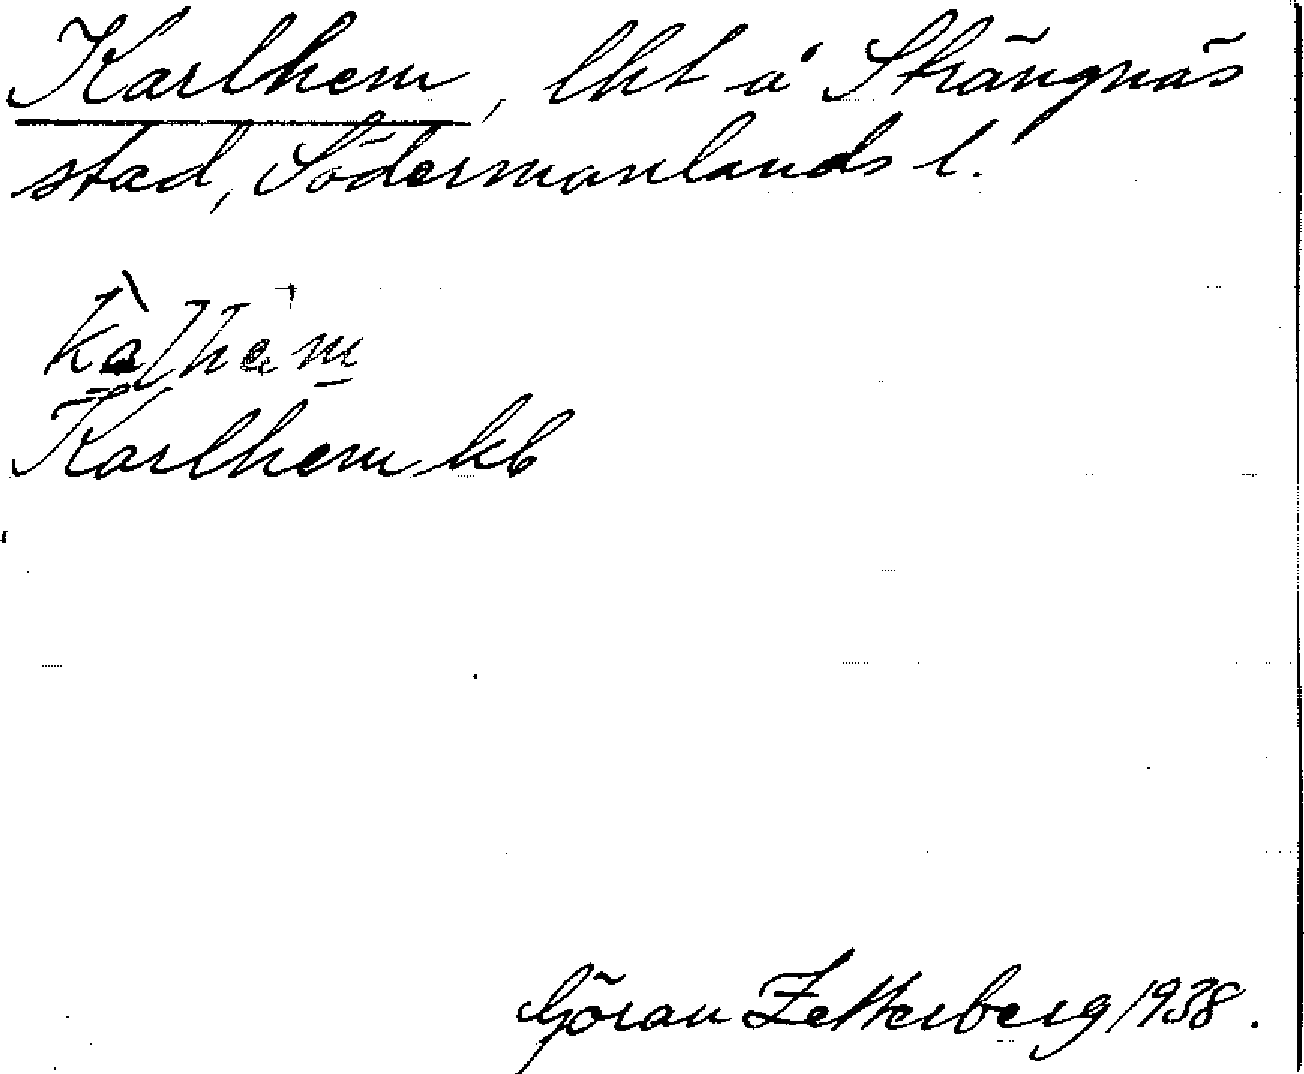 Karlhem, lht å Strängnäs
stad, Södermanlands l.
Karlhem kb
Göran Zetterberg 1938.